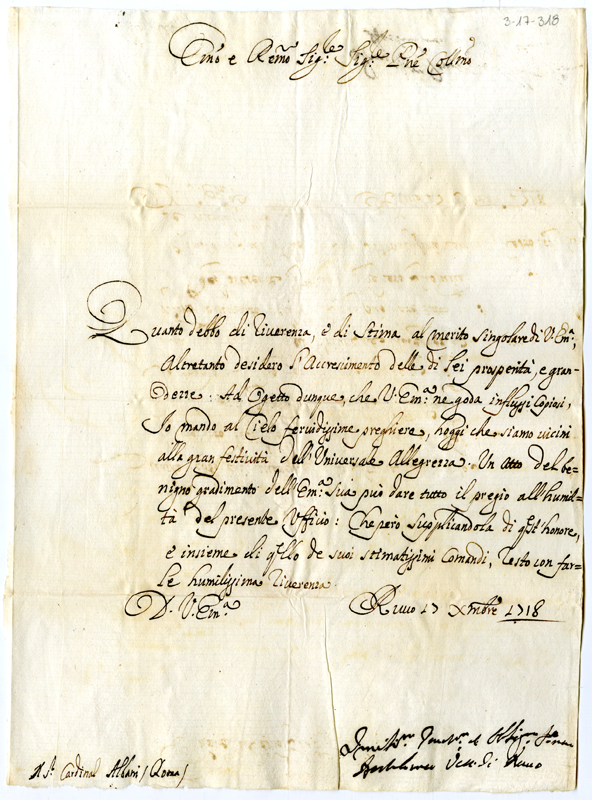 3-17-318
Em̃o e Rem̃o Sig.re Sig.re Pñe Collm̃o
Quanto debbo di riverenza, e di Stima al merito singolare di V. Em.a,
Altretanto desidero l'Accrescimento delle di Lei prosperità, e gran-
dezze: Ad Ogetto dunque che V. Em.a ne goda influssi Copiosi,
Io mando al Cielo fervidissime preghiere, hoggi che siamo vicini
alla gran festività dell'Universale Allegrezza. Un atto del be-
nigno gradimento dell'Em.a Sua può dare tutto il pregio all'humil-
tà del presente Ufficio: Che però supplicandola di q.st'honore,
e insieme di q.llo de suoi stimatissimi Comandi, resto con far-
le humilissima riverenza.
D. V. Em.a
Ruvo 17 Xmbre 1718
Vesc. di Ruvo
Al S.r Cardinal Albani (Roma)